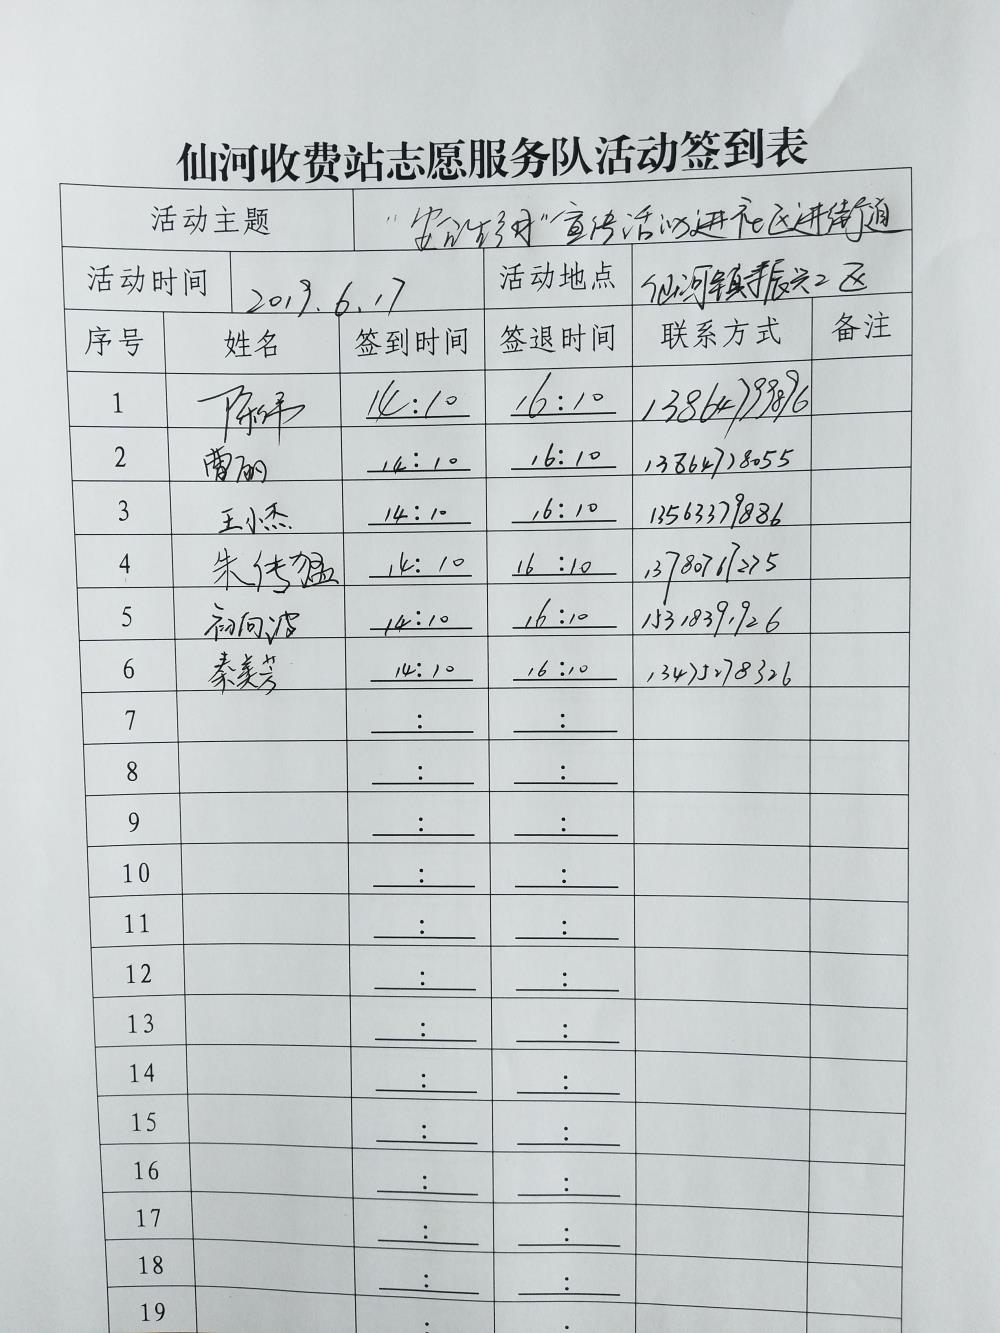 仙河收费站志愿服务队活动签到表
活动主题 "安全生产月"宣传活动进社区进街道
活动时间 2019.6.17 活动地点 仙河镇振兴二区
序号 姓名 签到时间 签退时间 联系方式 备注
1 14:10 16:10 13864799896
2 曹丽 14:10 16:10 13864728055
3 王小杰 14:10 16:10 13563379886
4 朱传猛 14:10 16:10 13780767275
5 初向波 14:10 16:10 15318391926
6 秦美芳 14:10 16:10 13475278326
7 : :
8 : :
9 : :
10 : :
11 : :
12 : :
13 : :
14 : :
15 : :
16 : :
17 : :
18 : :
19 : :